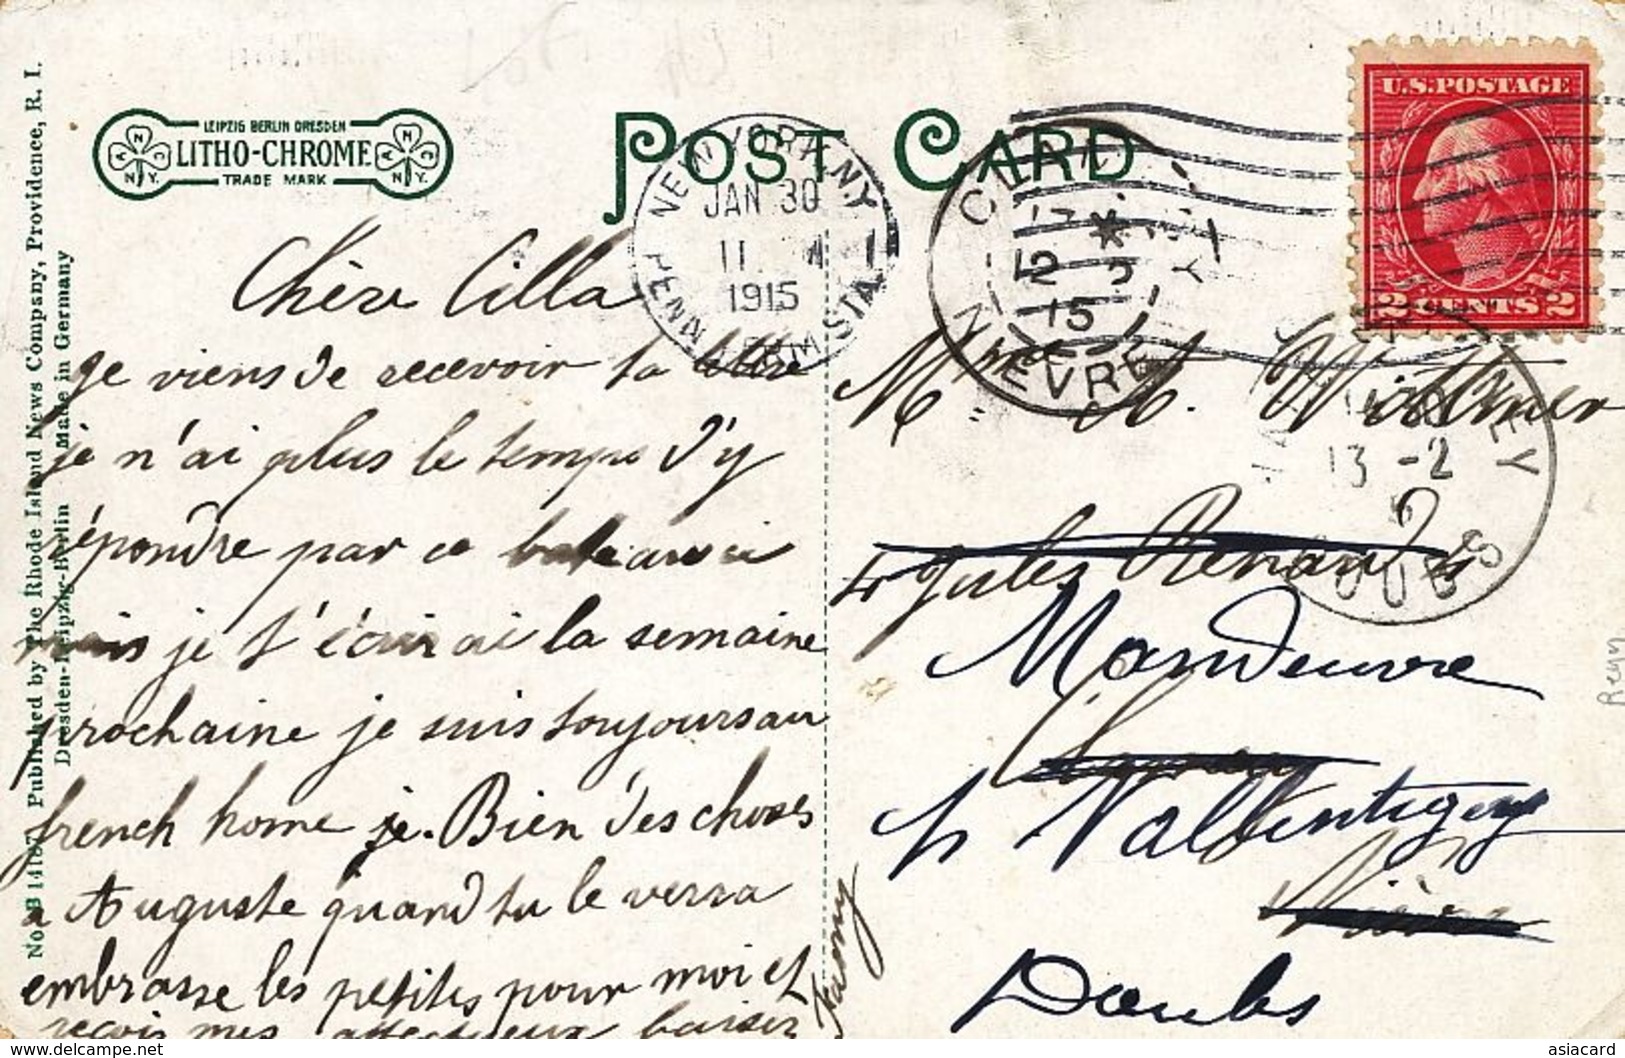 LEIPZIG BERLIN DRESDEN
LITHO-CHROME
TRADE MARK
POST CARD
NEW YORK, N.Y.
JAN 30
11
1915
PENN TERM STA.
NIEVRE
12 2
15
13 -2
DOUBS
U.S. POSTAGE
2 CENTS 2
Published by The Rhode Island News Company, Providence, R. I.
Dresden-Leipzig-Berlin Made in Germany
Chère Cilla
je viens de recevoir ta lettre
je n'ai plus le temps d'y
répondre par ce bateau ci
mais je t'écrirai la semaine
prochaine je suis toujours au
french home je. Bien des choses
a Auguste quand tu le verra
embrasse les petites pour moi et
reçois mes affectueux baiser
Fanny
Mme A. Wittmer
4 Jules Renard 4
Mandeuvre
p Vallentigney
Doubs
asiacard